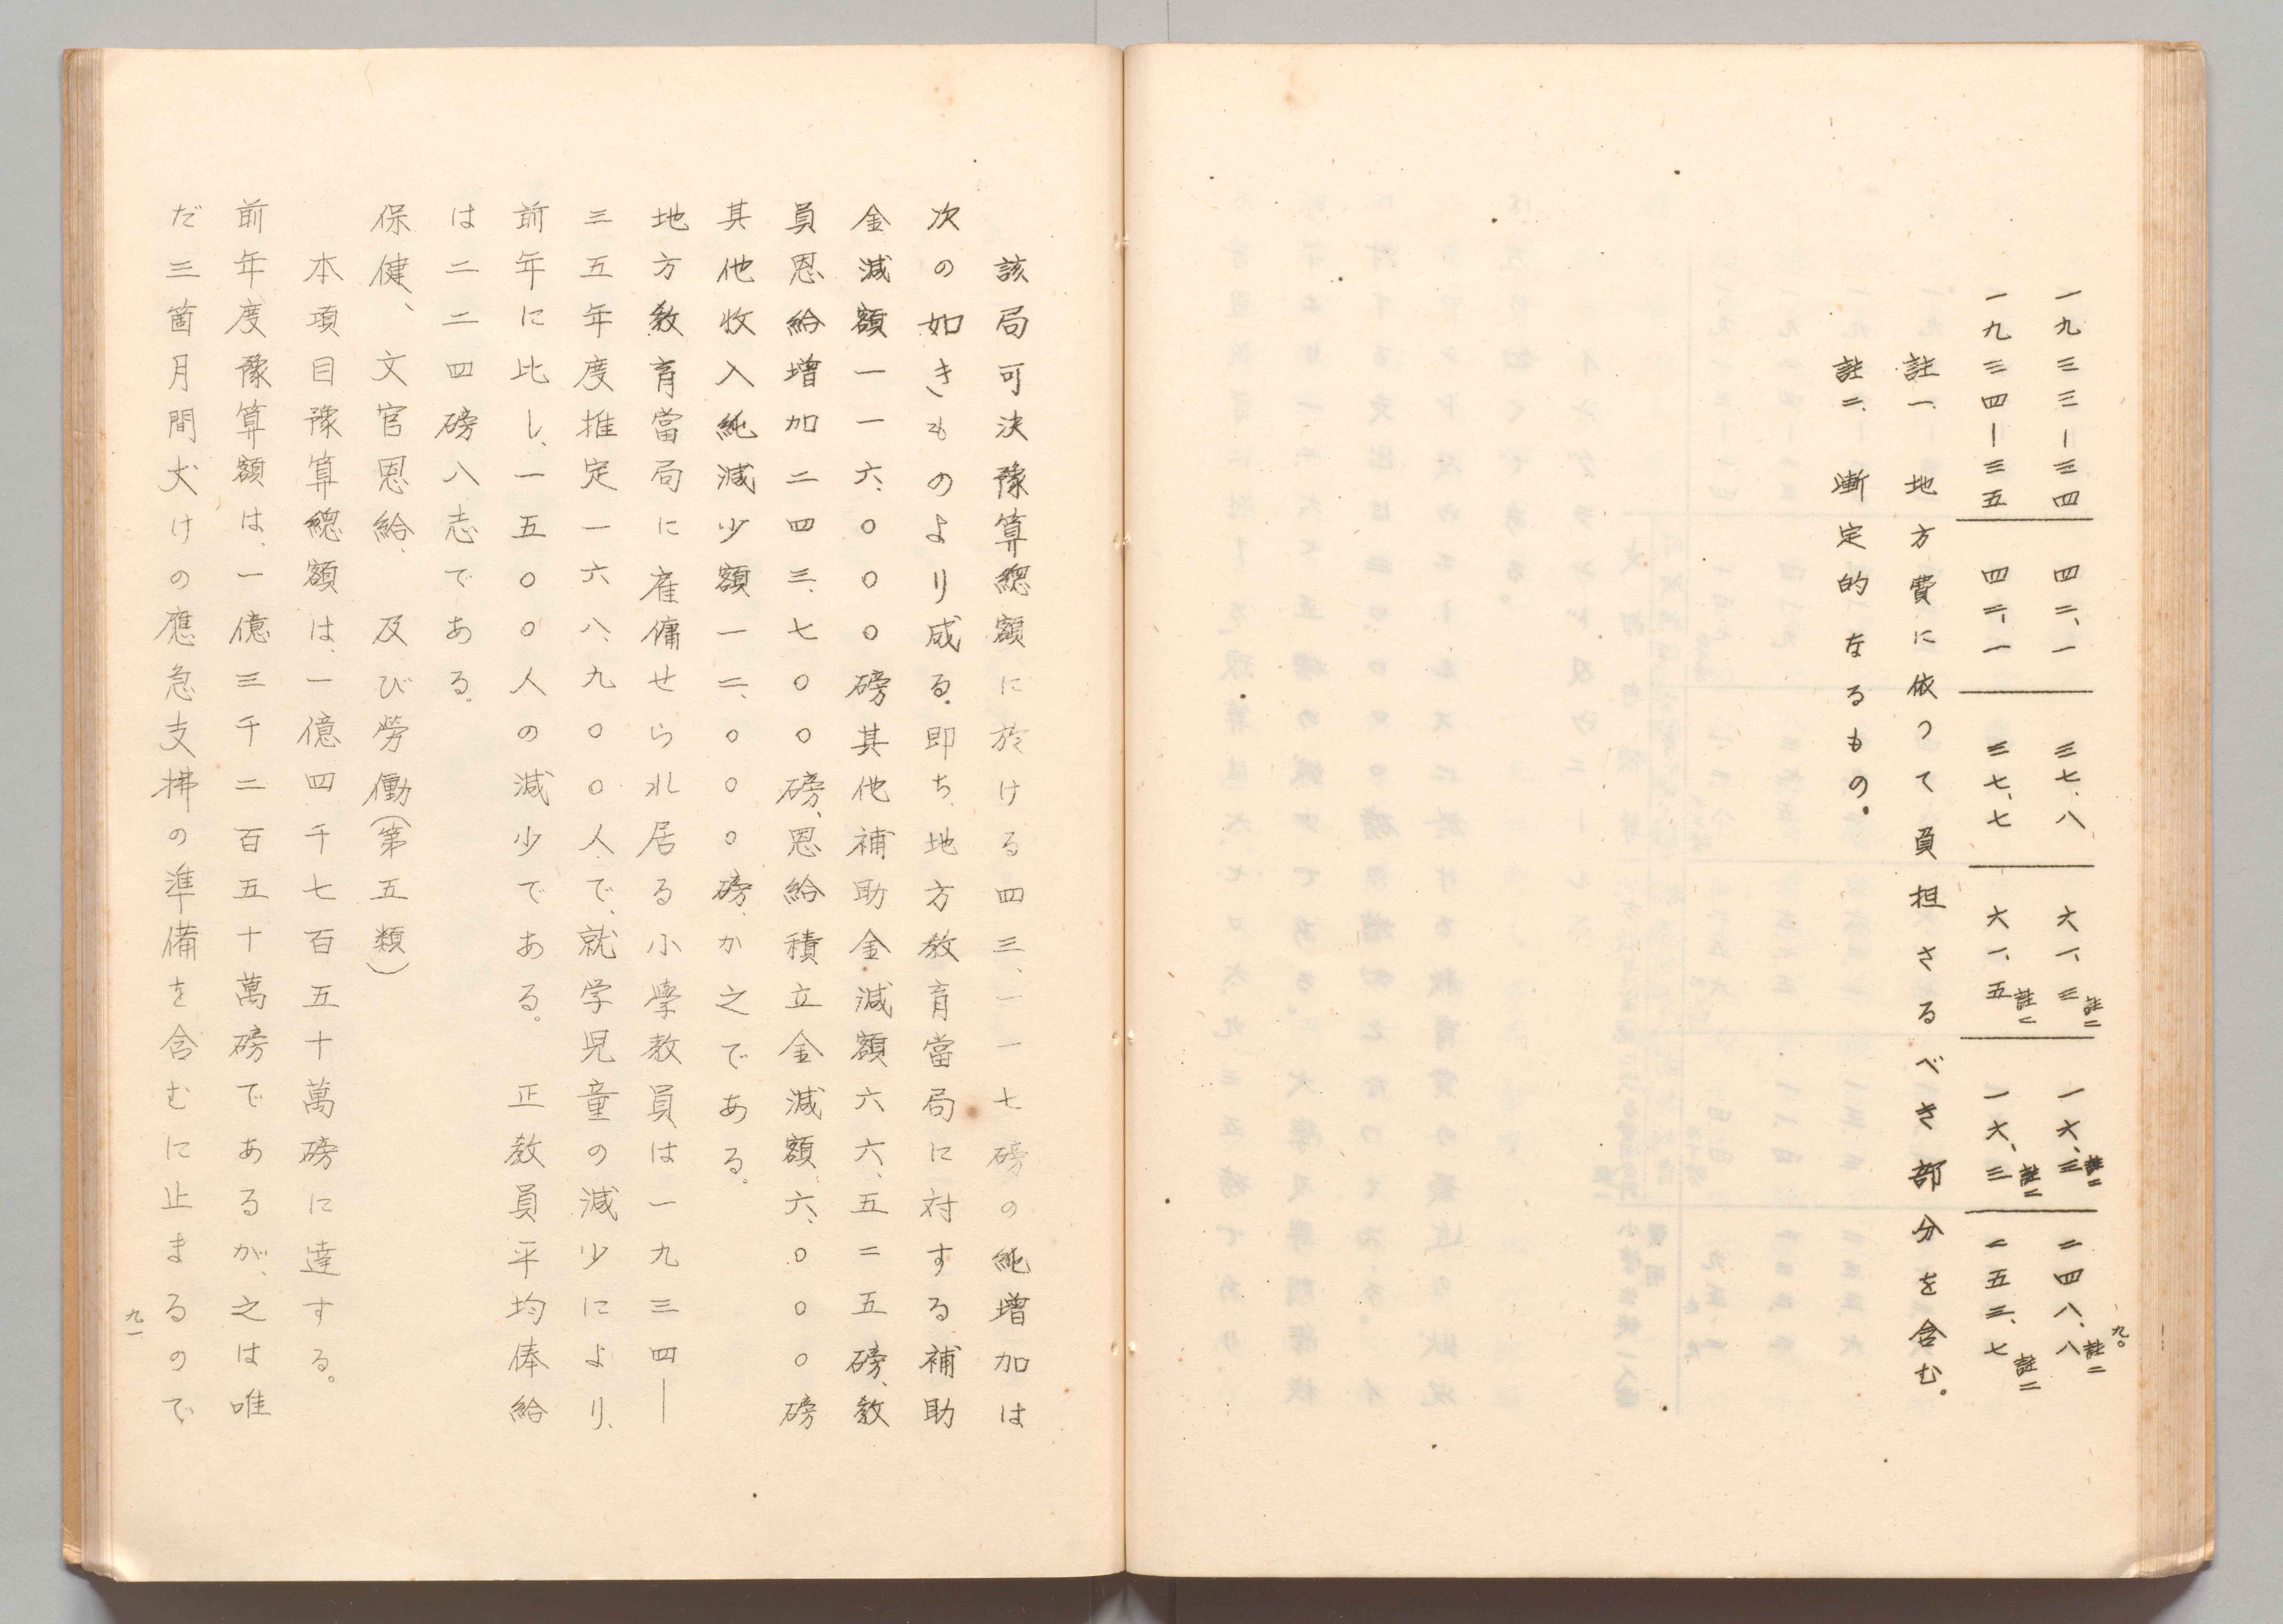 一九三三ー三四 四二、一 三七、八 六一、三註二 一六、三註二 二四八、八註二
一九三四ー三五 四二、一 三七、七 六一、五註二 一六、三註二 二五三、七註二
註一、地方費に依つて負担さるべき部分を含む。
註二、漸定的なるもの。
九〇
該局可決豫算總額に於ける四三、一一七磅の純増加は
次の如きものより成る。即ち、地方教育當局に対する補助
金減額一一六、〇〇〇磅其他補助金減額六六、五二五磅、教
員恩給増加二四三、七〇〇磅、恩給積立金減額六、〇〇〇磅
其他收入純減少額一二、〇〇〇磅、か之である。
地方教育當局に雇傭せられ居る小學教員は一九三四ー
三五年度推定一六八、九〇〇人で、就学児童の減少により、
前年に比し、一五〇〇人の減少である。正教員平均俸給
は二二四磅八志である。
保健、文官恩給、及び勞働(第五類)
本項目豫算總額は、一億四千七百五十萬磅に達する。
前年度豫算額は、一億三千二百五十萬磅であるが、之は唯
だ三箇月間丈けの應急支拂の準備を含むに止まるので
九一